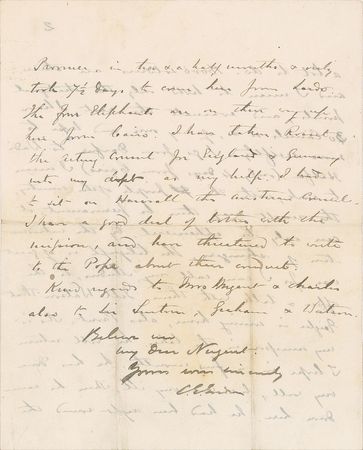 2
Province in two & a half months & only
took 7½ days to come here from
The four Elephants are on their way up
here from Cairo. I have taken Rosset
the acting Consul for England & Germany
into my dept as my help. I had
to sit on Hansall the Austrian Consul.
I have a good deal of bother with the
missions, and have threatened to write
to the Pope about their conduct.
Kind regards to Mrs Nugent & Charles
also to Sir Linton, Graham & Watson.
Believe me
my Dear Nugent.
Yours very sincerely
C E Gordon